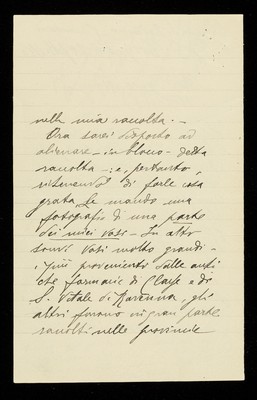 nella mia raccolta. -
Ora sarei disposto ad
alienare - in blocco - detta
raccolta - : e, pertanto,
ritenendo di farle cosa
grata, Le mando una
fotografia di una parte
dei miei vasi - In altr
sonvi vasi molto grandi -
i più provenienti dalle anti
che farmacie di Classe e di
S. Vitale di Ravenna, gli
altri furono in gran parte
raccolti nelle provincie